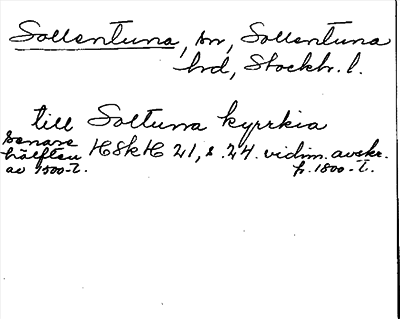 Sollentuna, sn, Sollentuna
hd, Stockh. l.
till Soltuna kyrkia
senare
hälften
av 1500-t.
HSkH 21, s. 24. vidim. avskr.
fr. 1800-t.